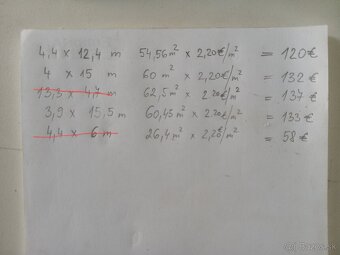 4,4 x 12,4 m 54,56 m² x 2,20€/m² = 120€
4 x 15 m 60 m² x 2,20€/m² = 132 €
13,3 x 4,7 m 62,5 m² x 2.20€/m² = 137 €
3,9 x 15,5 m 60,45 m² x 2.20€/m² = 133 €
4,4 x 6 m 26,4 m² x 2,20€/m² = 58 €